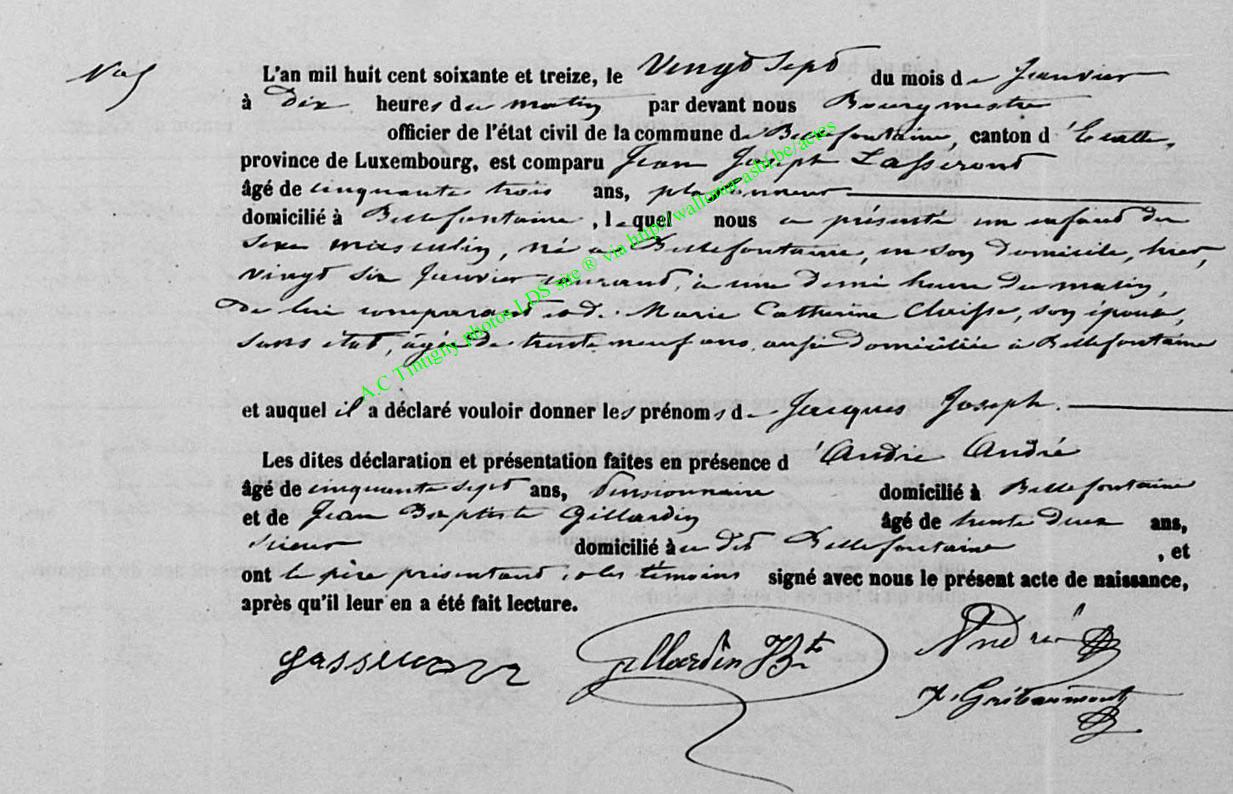 Nal
L'an mil huit cent soixante et treize, le Vingt Sept du mois de Janvier
à Dix heures du matin par devant nous Bourgmestre
officier de l'état civil de la commune de Bellefontaine, canton d'Etalle,
province de Luxembourg, est comparu Jean Joseph Lasseront
âgé de cinquante trois ans, plafonneur
domicilié à Bellefontaine, lequel nous a présenté un enfant du
sexe masculin, né à Bellefontaine, en son domicile, hier,
vingt six Janvier courant, à une demi heure du matin,
de lui comparant et de Marie Catherine Clairsse, son épouse,
sans état, agée de trente neuf ans, aussi domiciliée à Bellefontaine
et auquel il a déclaré vouloir donner les prénoms de Jacques Joseph.
Les dites déclaration et présentation faites en présence d'André André
âgé de cinquante sept ans, Pensionnaire domicilié à Bellefontaine
et de Jean Baptiste Gillardin âgé de trente deux ans,
scieur domicilié à dit Bellefontaine, et
ont le père présentant et les témoins signé avec nous le présent acte de naissance,
après qu'il leur en a été fait lecture.
Gillardin Bte
André
Gribaumont
A.C Tintigny Photos LDS site ® via http://wallonia-asbl.be/actes